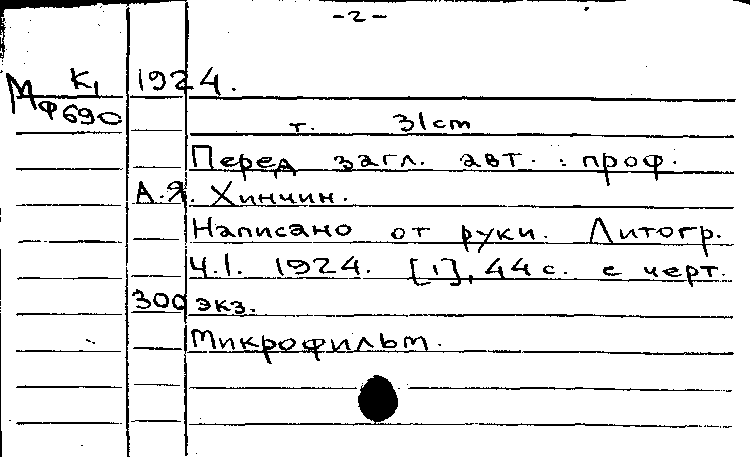 -2-
К1 1924.
МФ690
т. 31cm
Перед загл. авт. : проф.
А.Я. Хинчин.
Написано от руки. Литогр.
Ч.1. 1924. [1], 44 с. с черт.
300 экз.
Микрофильм.